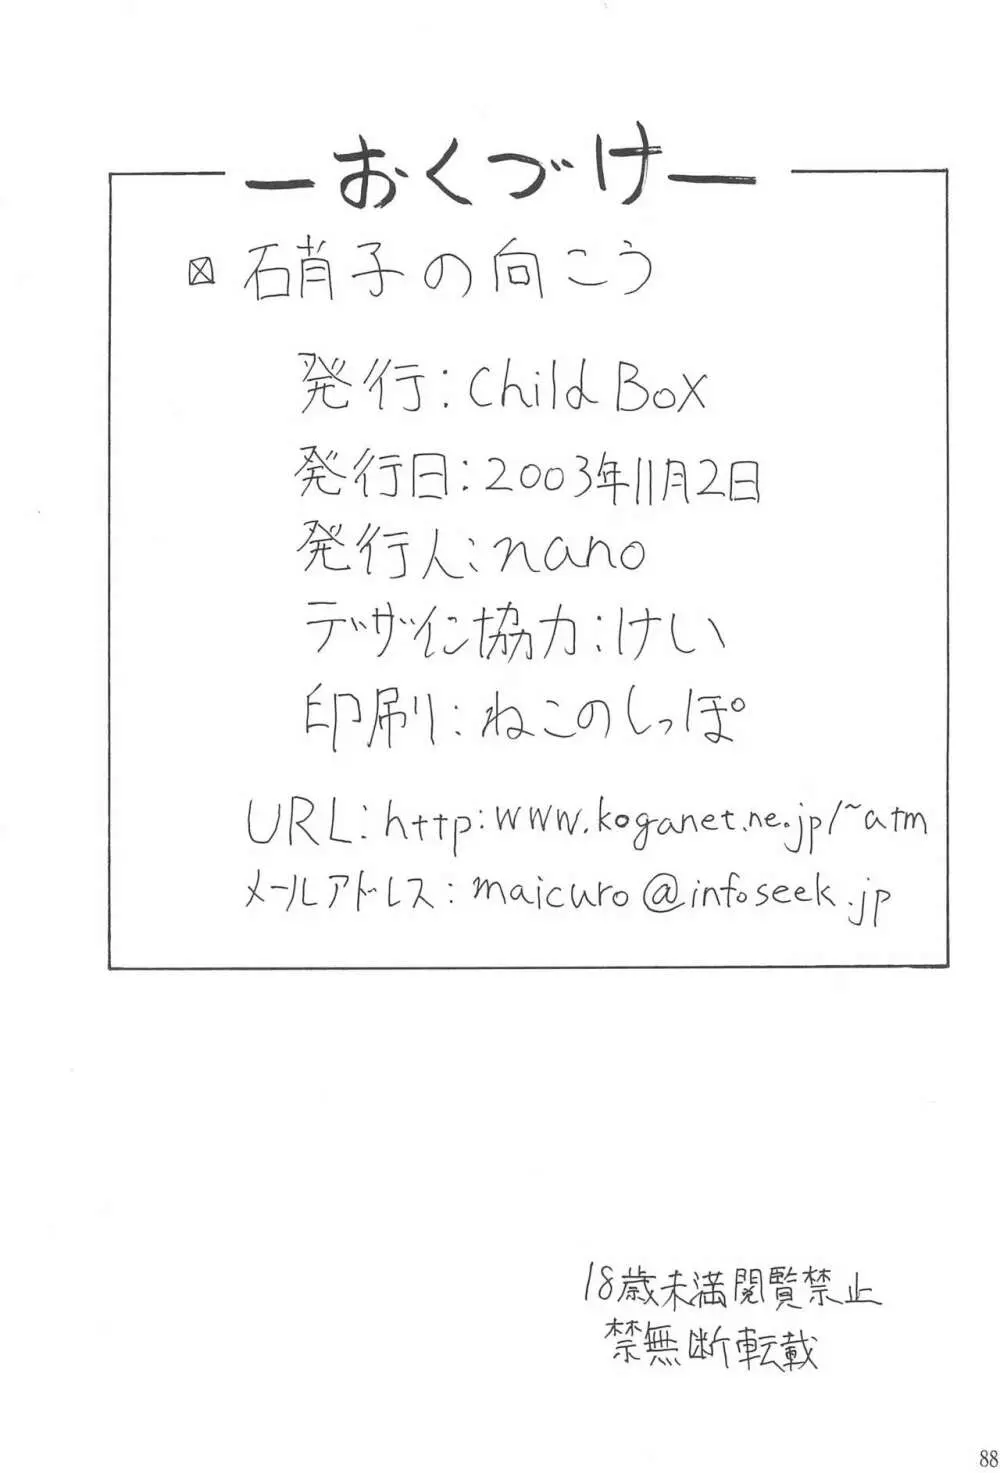 ーおくづけー
☒ 硝子の向こう
発行:Child Box
発行日:2003年11月2日
発行人:nano
デザイン協力:けい
印刷:ねこのしっぽ
URL:http:www.koganet.ne.jp/~atm
メールアドレス:maicuro@infoseek.jp
18歳未満閲覧禁止
禁無断転載
88